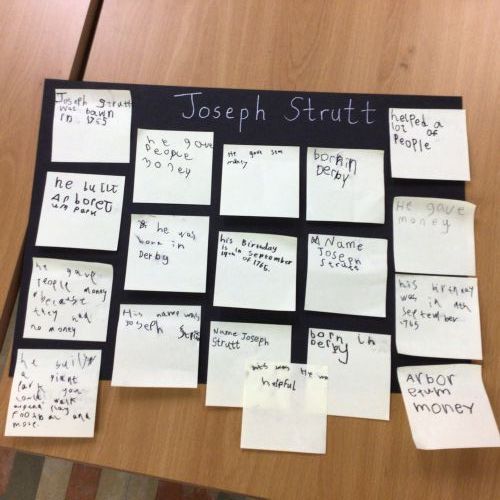 Joseph Strutt
Joseph Strutt
was bawn
in
he gave
People
money
He gave som
money
born in
Derby
helped a
lot of
People
he built
Arboret
um Park
he was
born in
Derby
his Birthday
is in september
19th of 1765.
Name
Joseph
Strutt
He gave
money
he gave
People money
because
they had
no money
His name was
Joseph
Name Joseph
Strutt
born in
Derby
his birthday
was in
September
1765
he built
a giant
Park you
could walk
around play
Football and
more.
He was
helpful
Arbor
etum
money